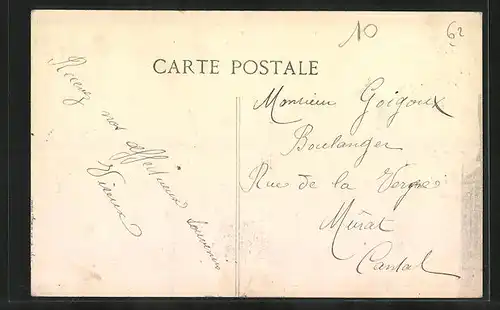 10
62
CARTE POSTALE
Recevez nos affectueux souvenirs
Monsieur Goigoux
Boulanger
Rue de la
Murat
Cantal